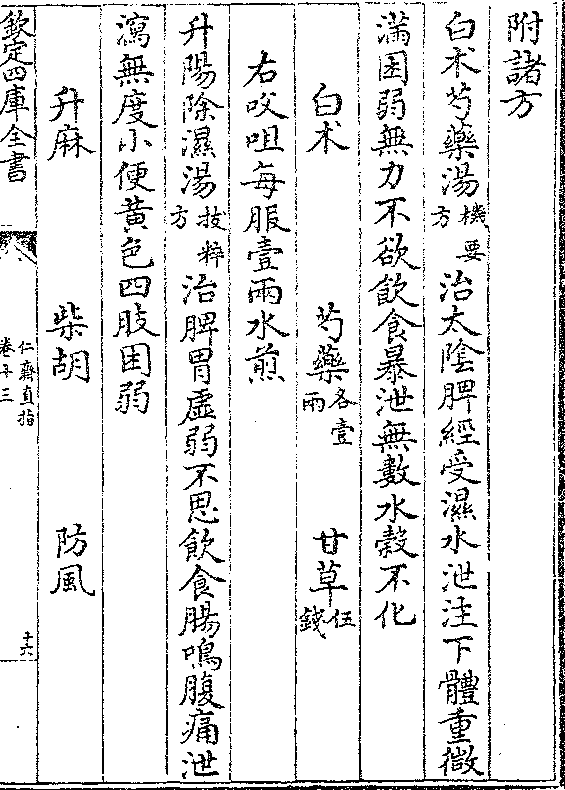 附諸方
白朮芍藥湯機要方治太陰脾經受濕水泄注下體重微
滿困弱無力不欲飲食暴泄無數水穀不化
白朮 芍藥各壹兩 甘草伍錢
右㕮咀每服壹兩水煎
升陽除濕湯拔粹方治脾胃虛弱不思飲食腸鳴腹痛泄
瀉無度小便黄色四肢困弱
升麻 柴胡 防風
欽定四庫全書 仁齋直指 卷十三 十六